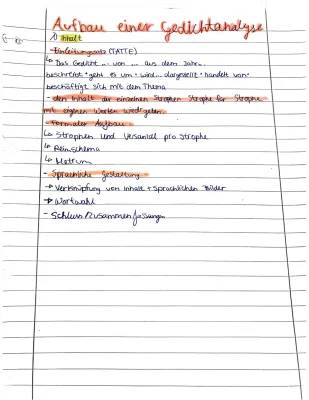 Aufbau einer Gedichtanalyse
1) Inhalt
- Einleitungssatz (TATTE)
↳ Das Gedicht ... von ... aus dem Jahr...
beschreibt • geht es um • wird... dargestellt • handelt von •
beschäftigt sich mit dem Thema
- den Inhalt der einzelnen Strophen Strophe für Strophe
mit eigenen Worten wiedergeben
- Formaler Aufbau
↳ Strophen und Versanzahl pro Strophe
↳ Reimschema
↳ Metrum
- Sprachliche Gestaltung
→ Verknüpfung von Inhalt + Sprachlichen Bilder
→ Wortwahl
- Schluss/Zusammenfassungen